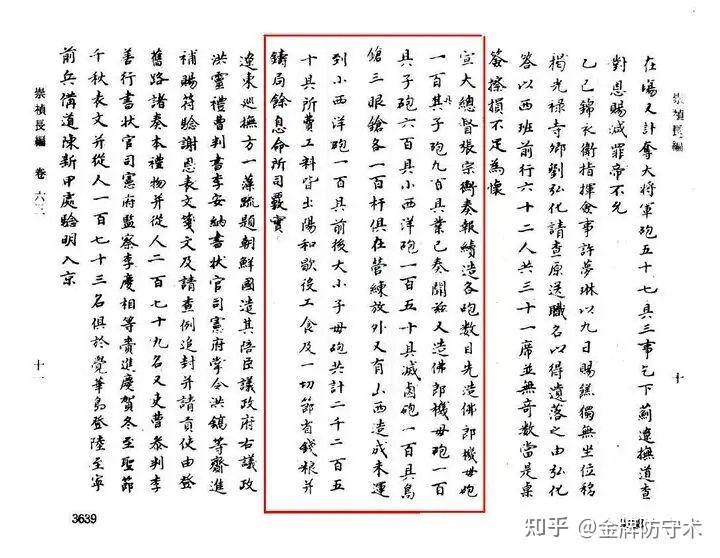 崇禎長編
十
在塲又計奪大将軍砲五十七具三事乞下薊遼撫道查
對恩賜減罪帝不允
乙巳錦衣衛指揮僉事許夢琳以九日賜糕獨無坐位移
揭光祿寺卿劉弘化請查原送職名以得遺落之由弘化
答以西班前行六十二人共三十一席並無竒數當是桌
签擦損不足為懷
宣大總督張宗衡奏報續造各砲數目先造佛郎機母砲
一百具子砲九百具業已奏聞茲又造佛郎機母砲一百
具子砲六百具小西洋砲一百五十具滅鹵砲一百具鳥
鎗三眼鎗各一百杆俱在營練放外又有山西造成未運
到小西洋砲一百具前後大小子母砲共計二千二百五
十具所費工料皆出陽和歇役工食及一切節省錢粮并
鑄局餘息命所司覈實
遼東巡撫方一藻疏題朝鮮國遣其陪臣議政府右議政
洪靈禮曹判書李安納書狀官司憲府掌令洪鎬等齎進
補賜符驗謝恩表文箋文及請查例追封并請貢使由登
舊路諸奏本禮物并從人二百七十九名又吏曹參判李
善行書狀官司憲府監察李慶相等賚進慶賀冬至聖節
千秋表文并從人一百七十三名俱於覺華島登陸至寧
前兵備道陳新甲處驗明入京
崇禎長編 卷六三
十一
3639
知乎 @金牌防守术